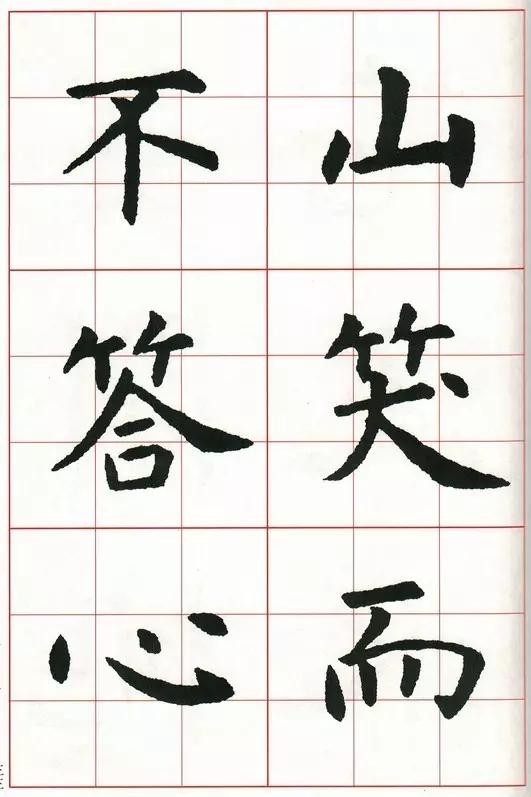 山笑而
不答心